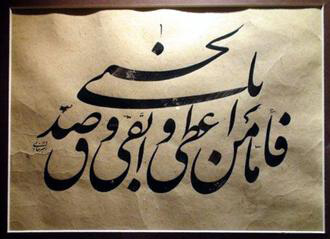 فأمّا من اعطى و اتّقى و صدّق
بالحسنى